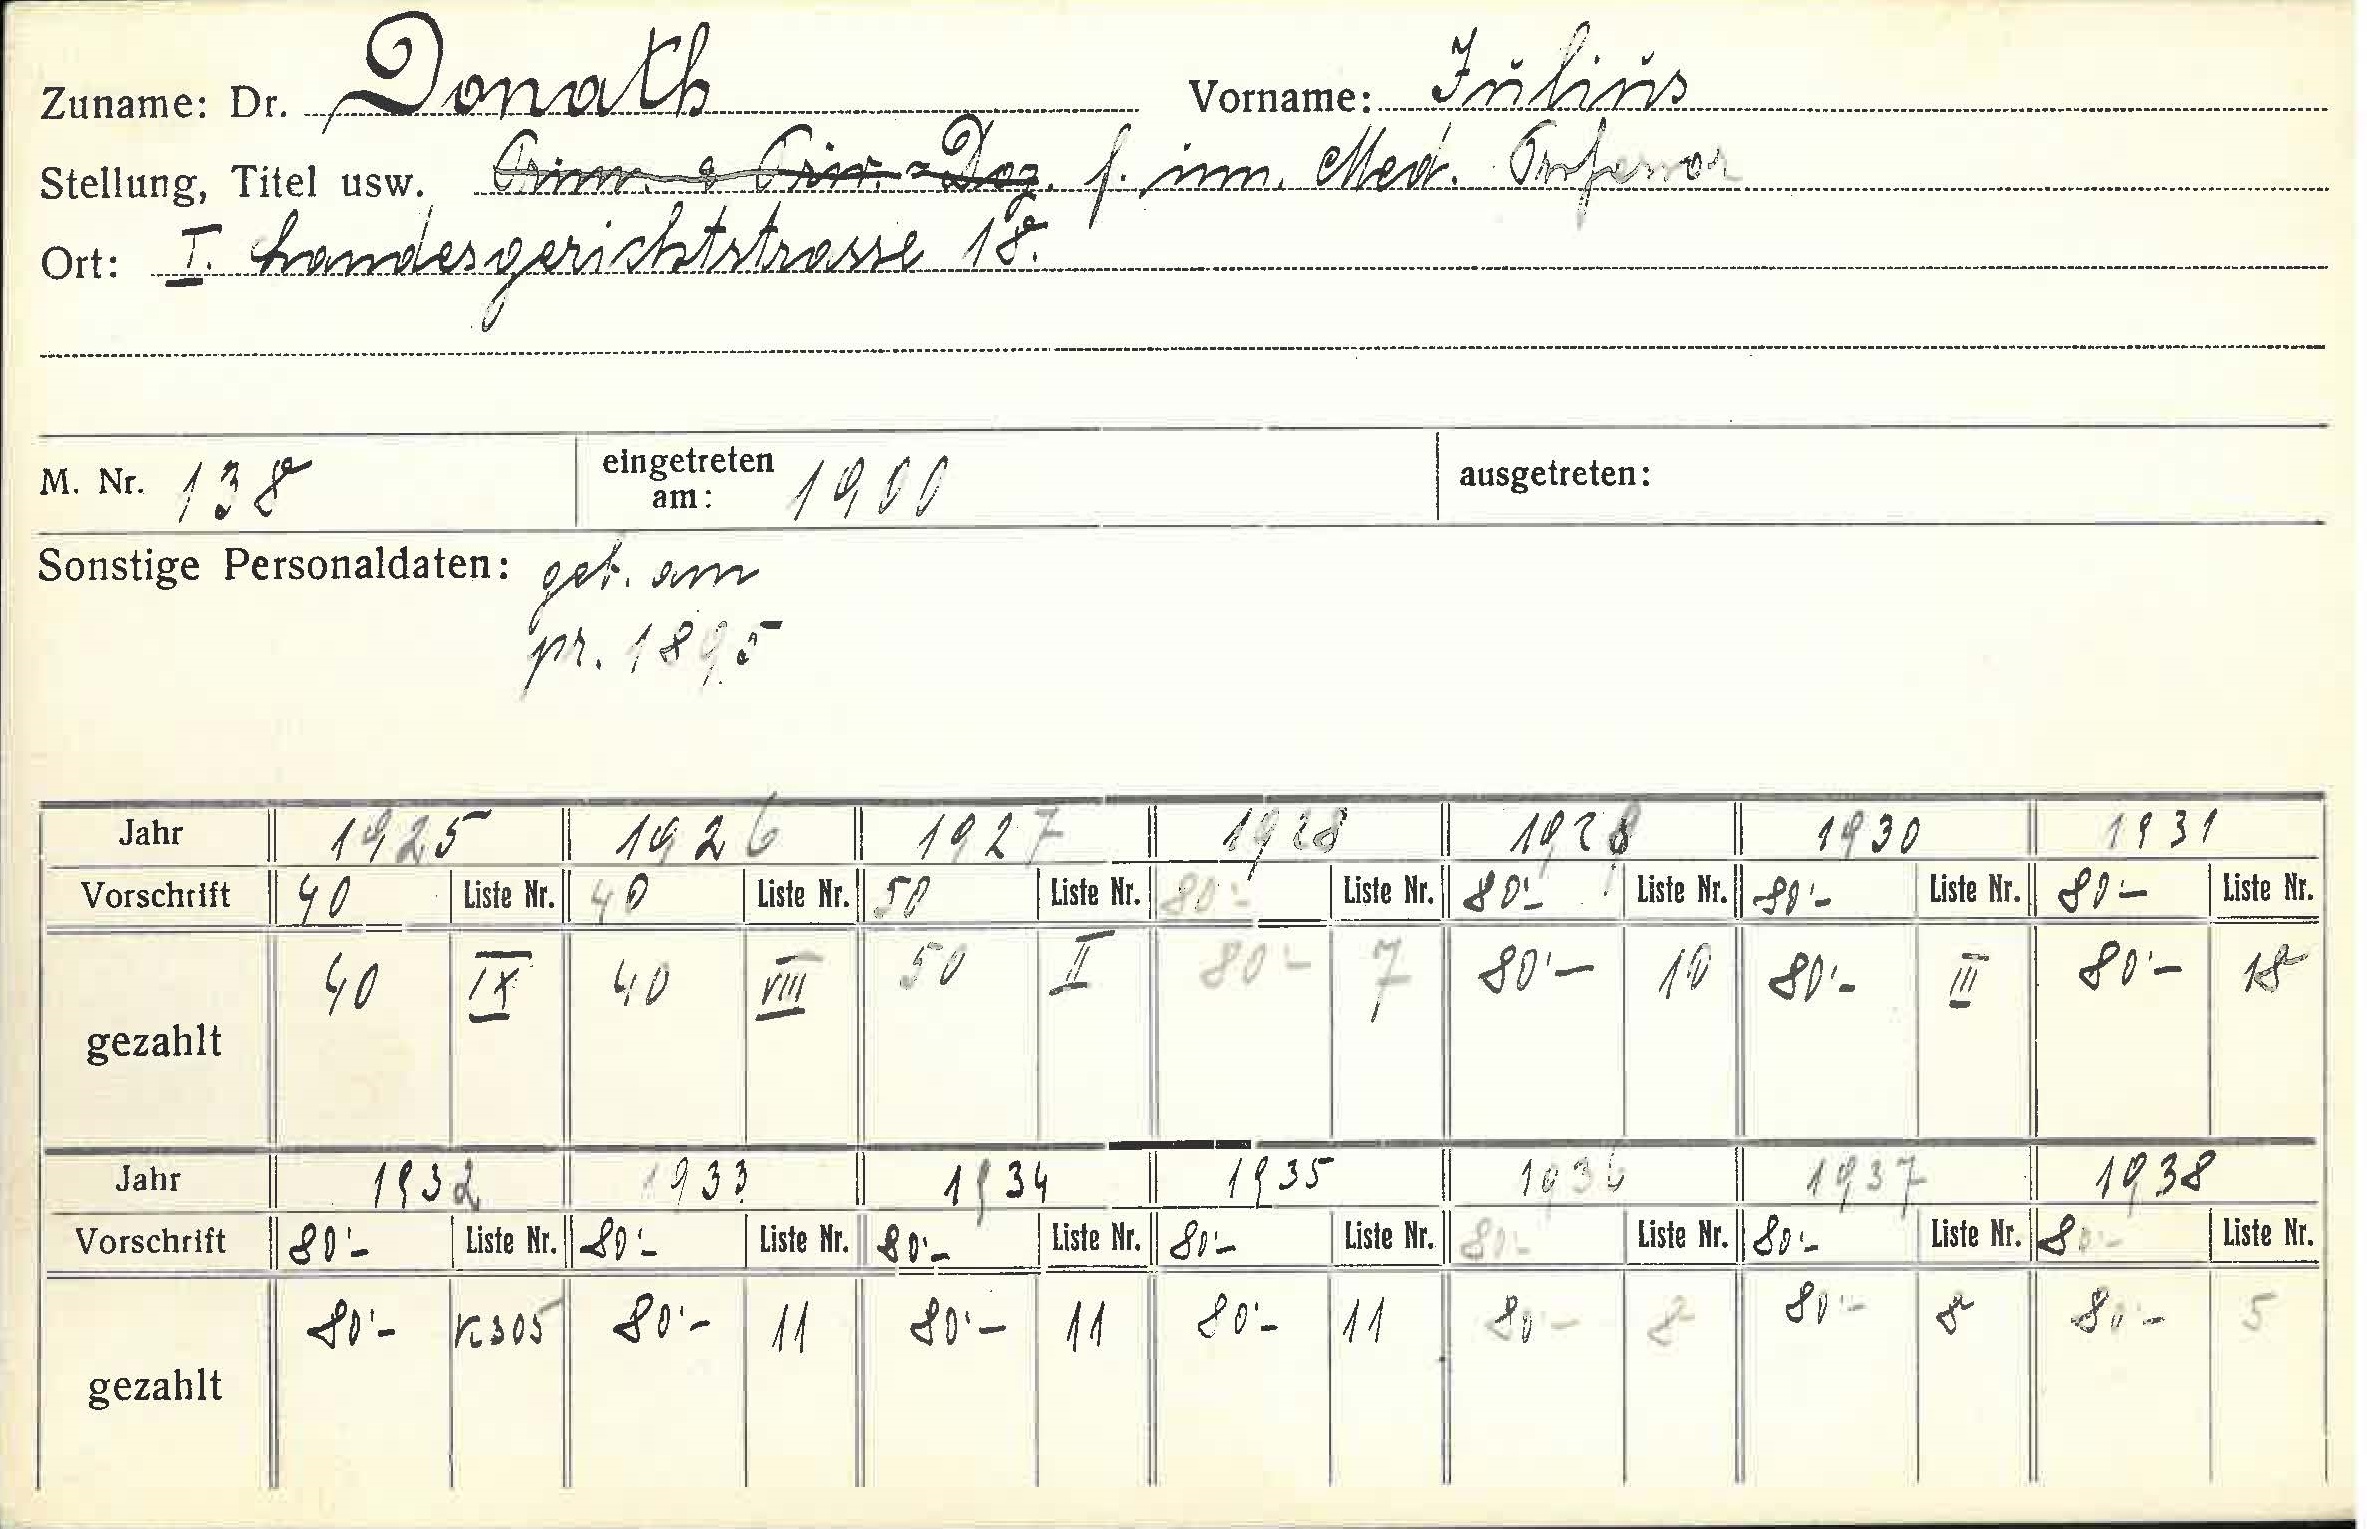 Zuname: Dr. Donath Vorname: Julius
Stellung, Titel usw. Prim. & Priv.-Doz. f. inn. Med. Professor
Ort: I. Landesgerichtstrasse 18.
M. Nr. 138 eingetreten am: 1900 ausgetreten:
Sonstige Personaldaten: geb. am
pr. 1895
Jahr 1925 1926 1927 1928 1929 1930 1931
Vorschrift 40 Liste Nr. 40 Liste Nr. 50 Liste Nr. 80·- Liste Nr. 80·- Liste Nr. 80·- Liste Nr. 80·- Liste Nr.
gezahlt 40 IX 40 VIII 50 II 80·- 7 80·- 10 80·- III 80·- 18
Jahr 1932 1933 1934 1935 1936 1937 1938
Vorschrift 80·- Liste Nr. 80·- Liste Nr. 80·- Liste Nr. 80·- Liste Nr. 80·- Liste Nr. 80·- Liste Nr. 80·- Liste Nr.
gezahlt 80·- K305 80·- 11 80·- 11 80·- 11 80·- 8 80·- 8 80·- 5